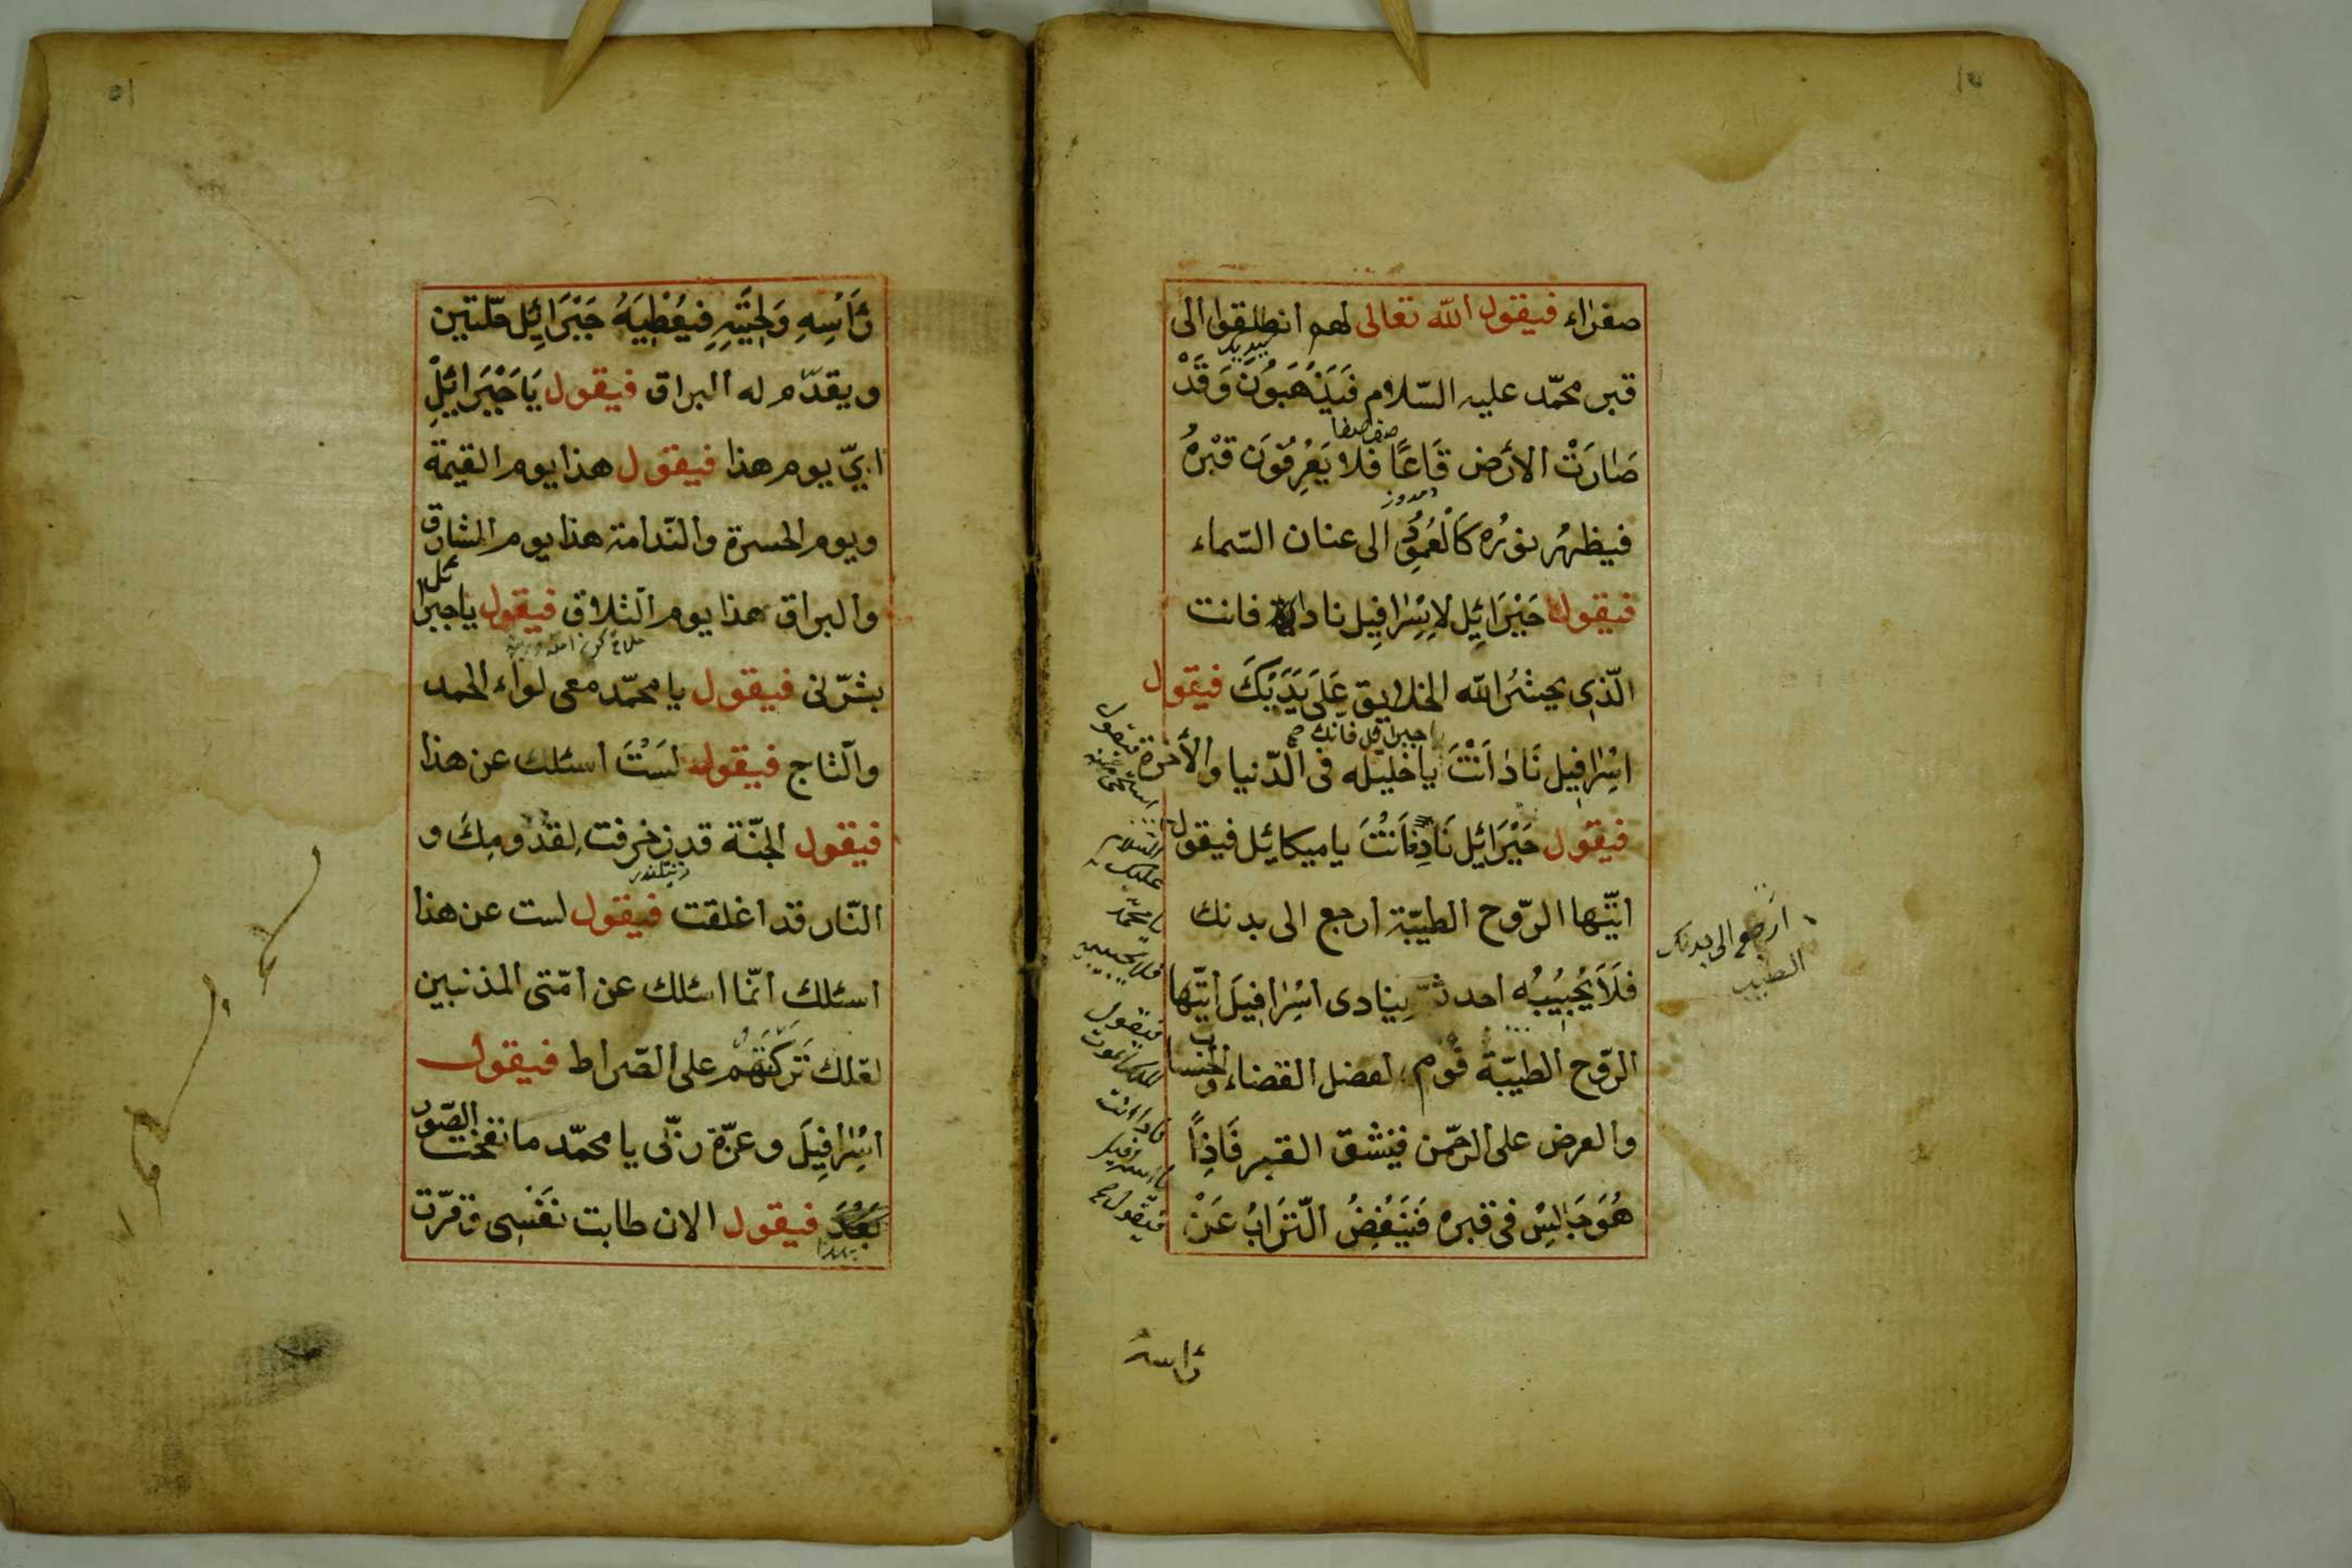 صفراء فيقول الله تعالى لهم انطلقوا الى
قبر محمّد عليه السّلام فَيَذْهَبُونَ وَقَدْ
صفصفا
صَارَتْ الأرض قَاعًا فلا يَعْرِفُونَ قَبْرهُ
فيظهرُ نورُه كَالْعَمُودِ الى عنان السّماء
فيقول جَبْرَائِل لاِسْرافِيل ناد فانت
الّذى يحشُر الله الخلايق عَلَى يَدَيْكَ فيقول
يا جبرائل فانك صح
اسْرافِيل نَادِ اَنْتَ يا خليله فى الدّنيا والأخرة
فيقول جَبْرَائِل نَادِ فَانْتَ يا ميكائل فيقول
ايّتها الرّوح الطيّبة ارجع الى بدنك
فلَا يُجِيبُه احد ثمّ ينادى اسْرافِيلَ ايّتها
الرّوح الطيّبة قوم لفصل القضاء والحساب
والعرض على الرحّمن فينشق القبر فَاِذاً
هُوَ جَالِسٌ فى قبره فَيَنْفُضُ الّتَرابُ عَنْ
السّلام
عليك
يا محمّد
فلا يجيبه
فيقول
ناد انت
يا اسرافيل
فيقول
ارجعى الى بدنك
الطيب
رَاسهُ
١٥
رَأْسِهِ وَلِحْيَتِهِ فيُعْطِيَهُ جَبْرَائِل حلّتين
ويقدّم له البراق فيقول يَا جَبْرَائِلْ
ايّ يوم هذا فيقول هذا يوم القيمة
ويوم الحسرة والنّدامة هذا يوم المشارق
والبراق هذا يوم التلاق فيقول يا جبرائل
بشّرنى فيقول يا محمّد معى لواء الحمد
والتاج فيقول لَسْتَ اسئلك عن هذا
فيقول الجنّة قد زخرفت لِقدُومِكَ و
النّار قد اغلقت فيقول لست عن هذا
اسئلك انّما اسئلك عن امّتى المذنبين
لعّلك تَرَكْتَهُمْ على الصّراط فيقول
اسْرافِيلَ وعزّة رَبّى يا محمّد ما نفخت الصّور
بَعْدَ فيقول الان طابت نَفْسِى وقرّت